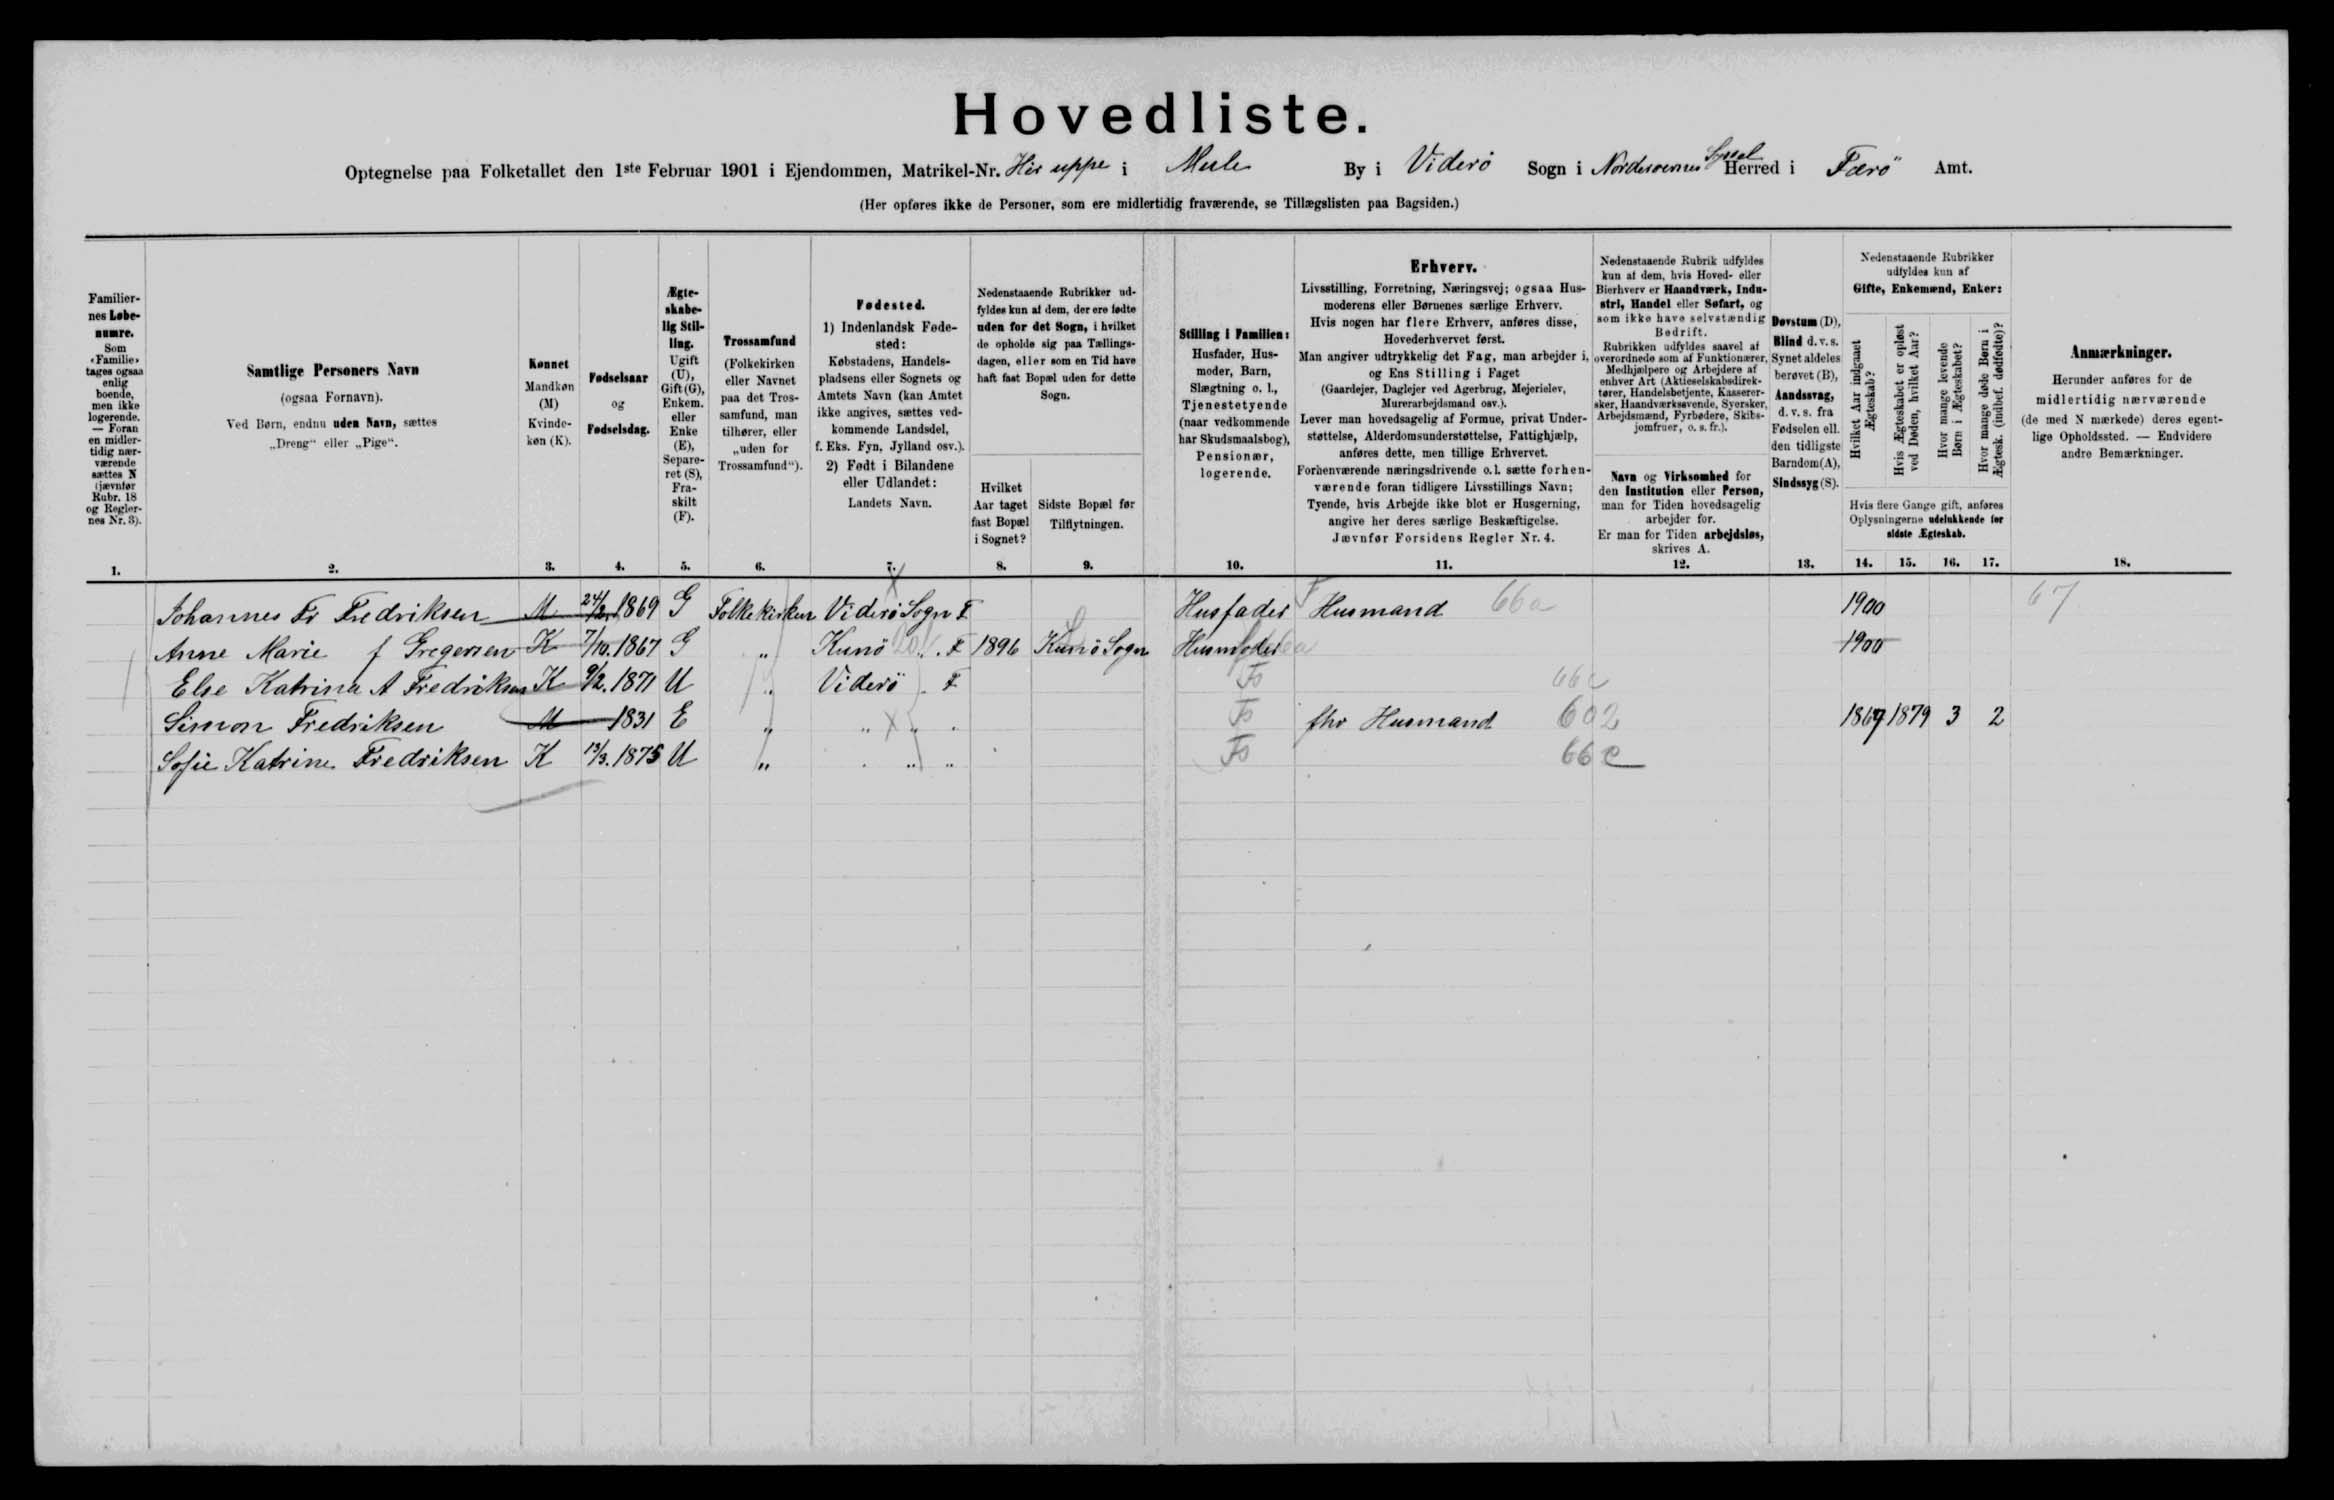 Hovedliste.
Optegnelse paa Folketallet den 1ste Februar 1901 i Ejendommen, Matrikel-Nr. Hér uppe i Mule By i Viderö Sogn i Norderoernes Syssel Herred i Færö Amt.
(Her opføres ikke de Personer, som ere midlertidig fraværende, se Tillægslisten paa Bagsiden.)
Familier-
nes Løbe-
numre.
Som
«Familie»
tages ogsaa
enlig
boende,
men ikke
logerende.
— Foran
en midler-
tidig nær-
værende
sættes N
(jævnfør
Rubr. 18
og Regler-
nes Nr. 3).
1.
Samtlige Personers Navn
(ogsaa Fornavn).
Ved Børn, endnu uden Navn, sættes
„Dreng“ eller „Pige“.
2.
Kønnet
Mandkøn
(M)
Kvinde-
køn (K).
3.
Fødselsaar
og
Fødselsdag.
4.
Ægte-
skabe-
lig Stil-
ling.
Ugift
(U),
Gift (G),
Enkem.
eller
Enke
(E),
Separe-
ret (S),
Fra-
skilt
(F).
5.
Trossamfund
(Folkekirken
eller Navnet
paa det Tros-
samfund, man
tilhører, eller
„uden for
Trossamfund“).
6.
Fødested.
1) Indenlandsk Føde-
sted:
Købstadens, Handels-
pladsens eller Sognets og
Amtets Navn (kan Amtet
ikke angives, sættes ved-
kommende Landsdel,
f. Eks. Fyn, Jylland osv.).
2) Født i Bilandene
eller Udlandet:
Landets Navn.
7.
Nedenstaaende Rubrikker ud-
fyldes kun af dem, der ere fødte
uden for det Sogn, i hvilket
de opholde sig paa Tællings-
dagen, eller som en Tid have
haft fast Bopæl uden for dette
Sogn.
Hvilket
Aar taget
fast Bopæl
i Sognet?
8.
Sidste Bopæl før
Tilflytningen.
9.
Stilling i Familien:
Husfader, Hus-
moder, Barn,
Slægtning o. l.,
Tjenestetyende
(naar vedkommende
har Skudsmaalsbog),
Pensionær,
logerende.
10.
Erhverv.
Livsstilling, Forretning, Næringsvej; ogsaa Hus-
moderens eller Børnenes særlige Erhverv.
Hvis nogen har flere Erhverv, anføres disse,
Hovederhvervet først.
Man angiver udtrykkelig det Fag, man arbejder i,
og Ens Stilling i Faget
(Gaardejer, Daglejer ved Agerbrug, Mejerielev,
Murerarbejdsmand osv.).
Lever man hovedsagelig af Formue, privat Under-
støttelse, Alderdomsunderstøttelse, Fattighjælp,
anføres dette, men tillige Erhvervet.
Forhenværende næringsdrivende o. l. sætte forhen-
værende foran tidligere Livsstillings Navn;
Tyende, hvis Arbejde ikke blot er Husgerning,
angive her deres særlige Beskæftigelse.
Jævnfør Forsidens Regler Nr. 4.
11.
Nedenstaaende Rubrik udfyldes
kun af dem, hvis Hoved- eller
Bierhverv er Haandværk, Indu-
stri, Handel eller Søfart, og
som ikke have selvstændig
Bedrift.
Rubrikken udfyldes saavel af
overordnede som af Funktionærer,
Medhjælpere og Arbejdere af
enhver Art (Aktieselskabsdirek-
tører, Handelsbetjente, Kasserer-
sker, Haandværkssvende, Syersker,
Arbejdsmænd, Fyrbødere, Skibs-
jomfruer, o. s. fr.).
Navn og Virksomhed for
den Institution eller Person,
man for Tiden hovedsagelig
arbejder for.
Er man for Tiden arbejdsløs,
skrives A.
12.
Døvstum (D),
Blind d. v. s.
Synet aldeles
berøvet (B),
Aandssvag,
d. v. s. fra
Fødselen ell.
den tidligste
Barndom (A),
Sindssyg (S).
13.
Nedenstaaende Rubrikker
udfyldes kun af
Gifte, Enkemænd, Enker:
Hvilket Aar indgaaet
Ægteskab?
Hvis Ægteskabet er opløst
ved Døden, hvilket Aar?
Hvor mange levende
Børn i Ægteskabet?
Hvor mange døde Børn i
Ægtesk. (indbef. dødfødte)?
Hvis flere Gange gift, anføres
Oplysningerne udelukkende for
sidste Ægteskab.
14. 15. 16. 17.
Anmærkninger.
Herunder anføres for de
midlertidig nærværende
(de med N mærkede) deres egent-
lige Opholdssted. — Endvidere
andre Bemærkninger.
18.
Johannes Fr Fredriksen M 24/2. 1869 G Folkekirken Viderö Sogn F Husfader Husmand 66a 1900 67
Anne Marie f Gregersen K 7/10. 1867 G „ Kunö „ . F 1896 Kunö Sogn Husmoder 1900
Else Katrina A Fredriksen K 9/2. 1871 U „ Viderö . F Fs 66c
Simon Fredriksen M 1831 E „ „ „ . Fs fhv Husmand 602 1867 1879 3 2
Sofie Katrine Fredriksen K 13/3. 1875 U „ . „ „ Fs 66c